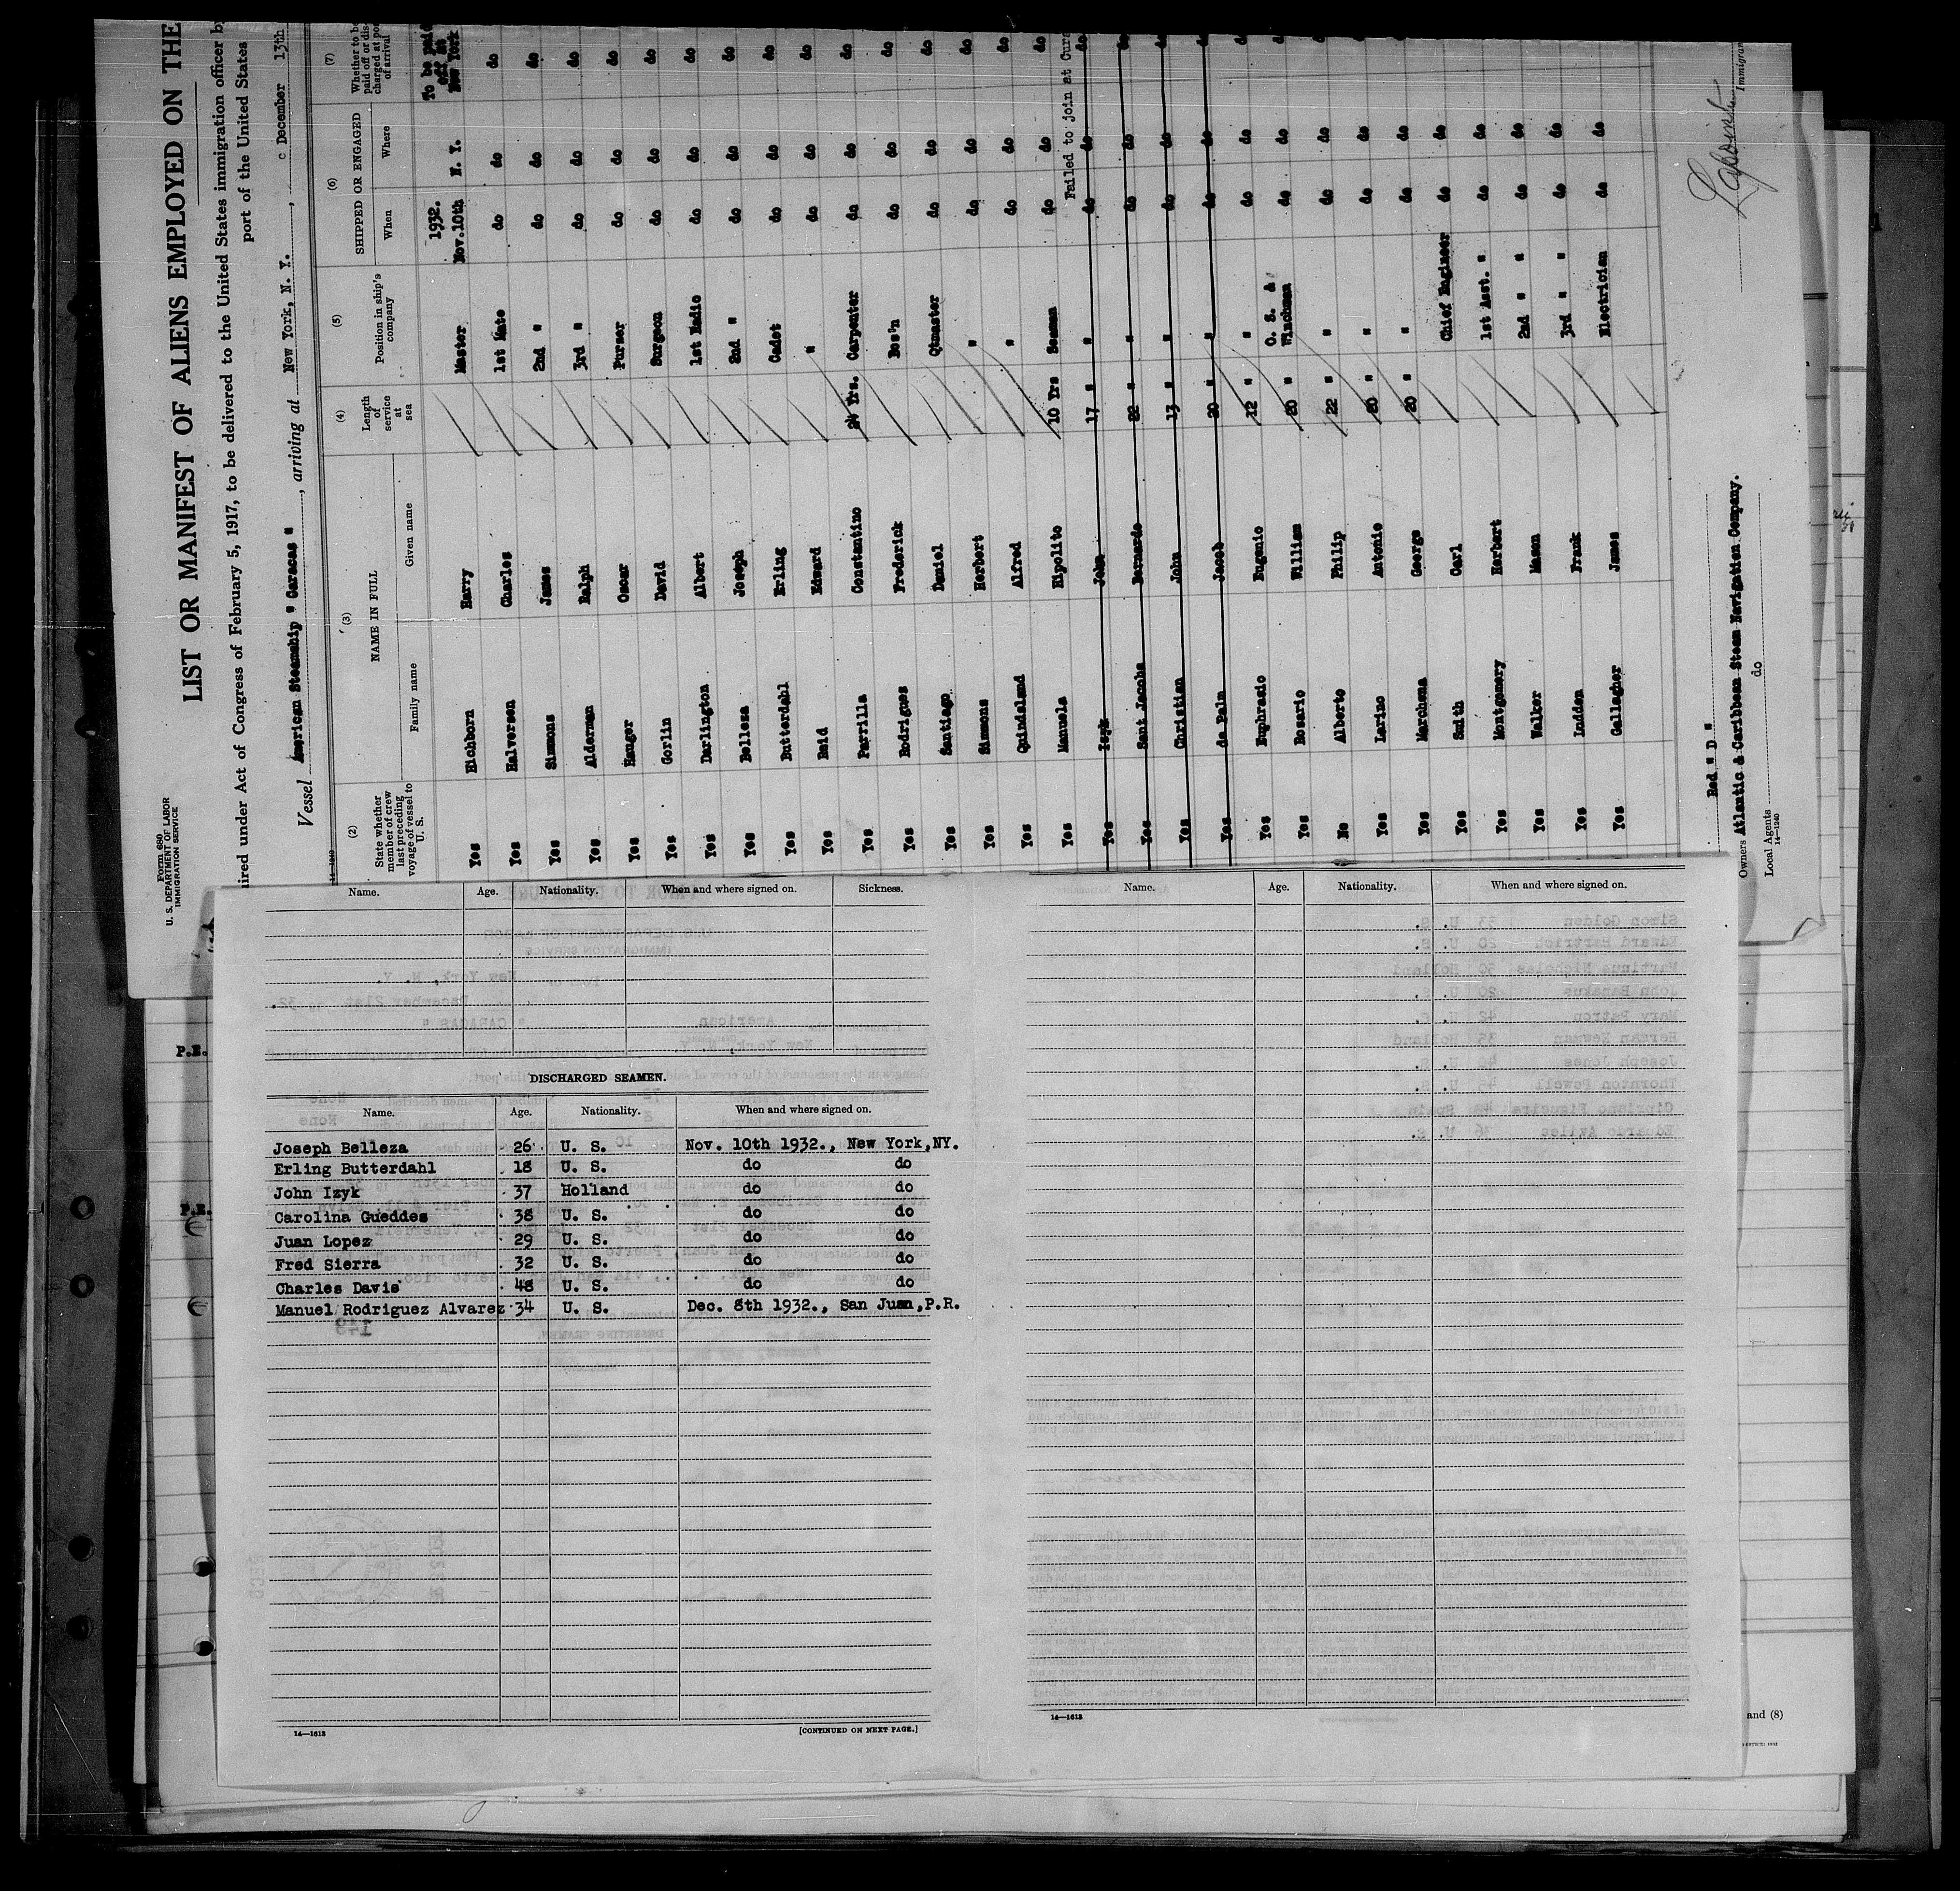 Form 680
U. S. DEPARTMENT OF LABOR
IMMIGRATION SERVICE
LIST OR MANIFEST OF ALIENS EMPLOYED ON THE
ired under Act of Congress of February 5, 1917, to be delivered to the United States immigration officer by
port of the United States
Vessel American Steamship " Caracas ", arriving at New York, N. Y., December 13th
14—1240
(2) (3) (4) (5) (6) (7)
State whether member of crew last preceding voyage of vessel to U. S. NAME IN FULL Length of service at sea Position in ship's company SHIPPED OR ENGAGED Whether to be paid off or discharged at port of arrival
Family name Given name When Where
1932. To be paid off at
Yes Eichborn Harry Master Nov.10th N. Y. New York
Yes Halversen Charles 1st Mate do do do
Yes Simmons James 2nd " do do do
Yes Alderman Ralph 3rd " do do do
Yes Hanger Oscar Purser do do do
Yes Gorlin David Surgeon do do do
Yes Darlington Albert 1st Radio do do do
Yes Belleza Joseph 2nd " do do do
Yes Butterdahl Erling Cadet do do do
Yes Reid Edward " do do do
Yes Parrilla Constantino 24 Yrs. Carpenter do do do
Yes Rodrigues Frederick Bos'n do do do
Yes Santiago Daniel Qtmaster do do do
Yes Simmons Herbert " do do do
Yes Quindeland Alfred " do do do
Yes Manuela Hipolito 10 Yrs Seaman do do do
Failed to join at Cura
Yes Izyk John 17 " " do do do
Yes Sant Jacobs Bernardo 22 " " do do do
Yes Christian John 13 " " do do do
Yes de Palm Jacob 20 " " do do do
Yes Euphrasio Eugenio 12 " " do do do
Yes Rosario William 20 " O. S. & Winchman do do do
No Alberto Philip 22 " " do do do
Yes Larino Antonio 20 " " do do do
Yes Marchena George 20 " " do do do
Yes Smith Carl Chief Engineer do do
Yes Montgomery Herbert 1st Asst. " do do
Yes Walker Mason 2nd " " do do
Yes Ludden Frank 3rd " " do do
Yes Gallagher James Electrician do do
Red " D "
Owners Atlantic & Caribbean Steam Navigation Company.
Local Agents do
14—1240
Immigran
P.R.
P.R.
Name. Age. Nationality. When and where signed on. Sickness.
DISCHARGED SEAMEN.
Name. Age. Nationality. When and where signed on.
Joseph Belleza 26 U. S. Nov. 10th 1932., New York,NY.
Erling Butterdahl 18 U. S. do do
John Izyk 37 Holland do do
Carolina Gueddes 38 U. S. do do
Juan Lopez 29 U. S. do do
Fred Sierra 32 U. S. do do
Charles Davis 48 U. S. do do
Manuel Rodriguez Alvarez 34 U. S. Dec. 8th 1932., San Juan,P.R.
14—1613
[CONTINUED ON NEXT PAGE.]
Name. Age. Nationality. When and where signed on.
14—1613
and (8)